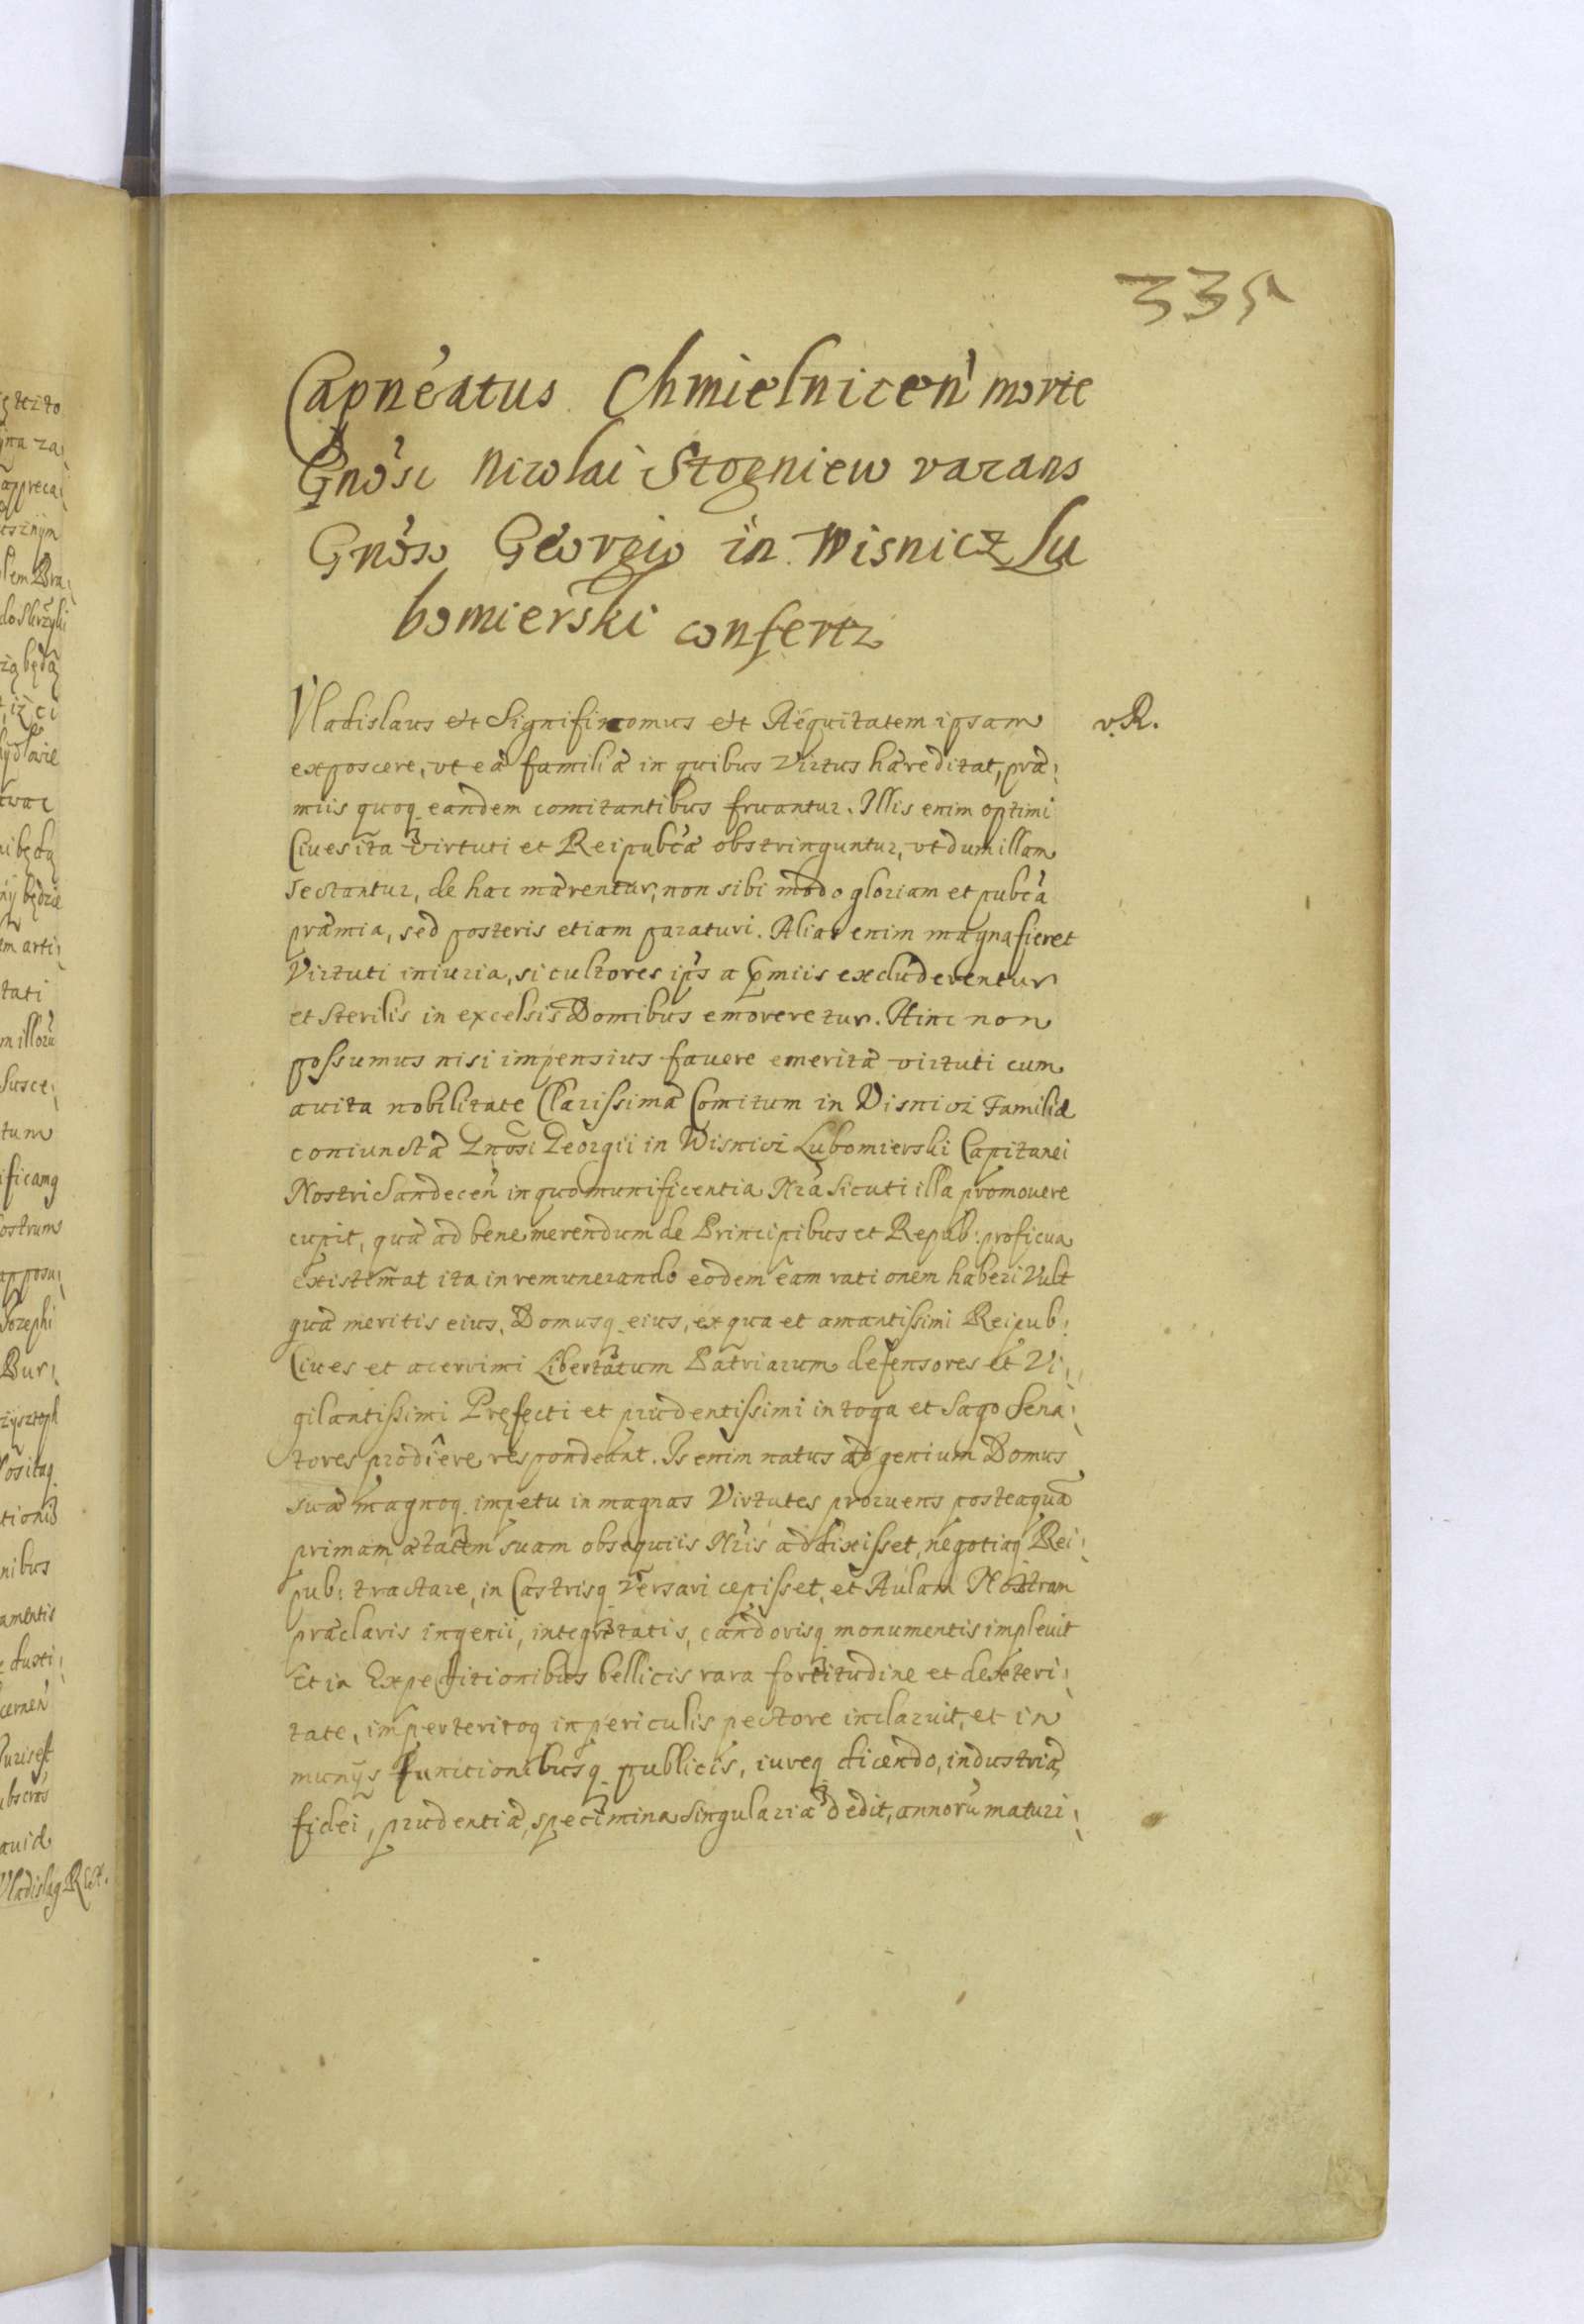 335
Capneatus Chmielnicen morte
Gnosi Nicolai Stogniew vacans
Gnoso Georgio in Wisnicz Lu
bomierski confertr
Vladislaus etc Significamus etc Aequitatem ipsam v. R.
exposcere, vt eae familiae in quibus Virtus haereditat, prae:
miis quoq eandem comitantibus fruantur. Illis enim optimi
Ciues ita virtuti et Reipubcae obstringuntur, vt dum illam
sectantur, de hac maerentur, non sibi modo gloriam et pubca
praemia, sed posteris etiam paraturi. Alias enim magna fieret
Virtuti iniuria, si cultores ips a pmiis excluderentur
et sterilis in excelsis Domibus emoreretur. Hinc non
possumus nisi impensius fauere emeritae virtuti cum
auita nobilitate Clarissimae Comitum in Visnicz Familiae
coniunctae Gnosi Georgii in Wisnicz Lubomierski Capitanei
Nostri Sandecen in quo munificentia Nra sicuti illa promouere
cupit, quae ad bene merendum de Principibus et Repub: proficua
existimat ita in remunerando eodem eam rationem haberi Vult
quae meritis eius, Domusq eius, ex qua et amantissimi Reipub:
Ciues et acerrimi Libertatum Patriarum defensores et Vi:
gilantissimi Prefecti et prudentissimi in toga et sago Sena:
tores prodiere respondeant. Is enim natus ad genium Domus
suae magnoq impetu in magnas Virtutes proruens posteaqua
primam aetatem suam obsequiis Nris addixisset, negotiaq Rei:
pub: tractare, in Castrisq versari cepisset, et Aulam Nostram
praeclaris ingenii, integritatis, candorisq monumentis impleuit
Et in Expeditionibus bellicis rara fortitudine et dexteri:
tate, imperteritoq in periculis pectore inclaruit, et in
munijs functionibusq publicis, iureq dicendo, industriae
fidei, prudentiae, specimina singularia dedit, annoru maturi: